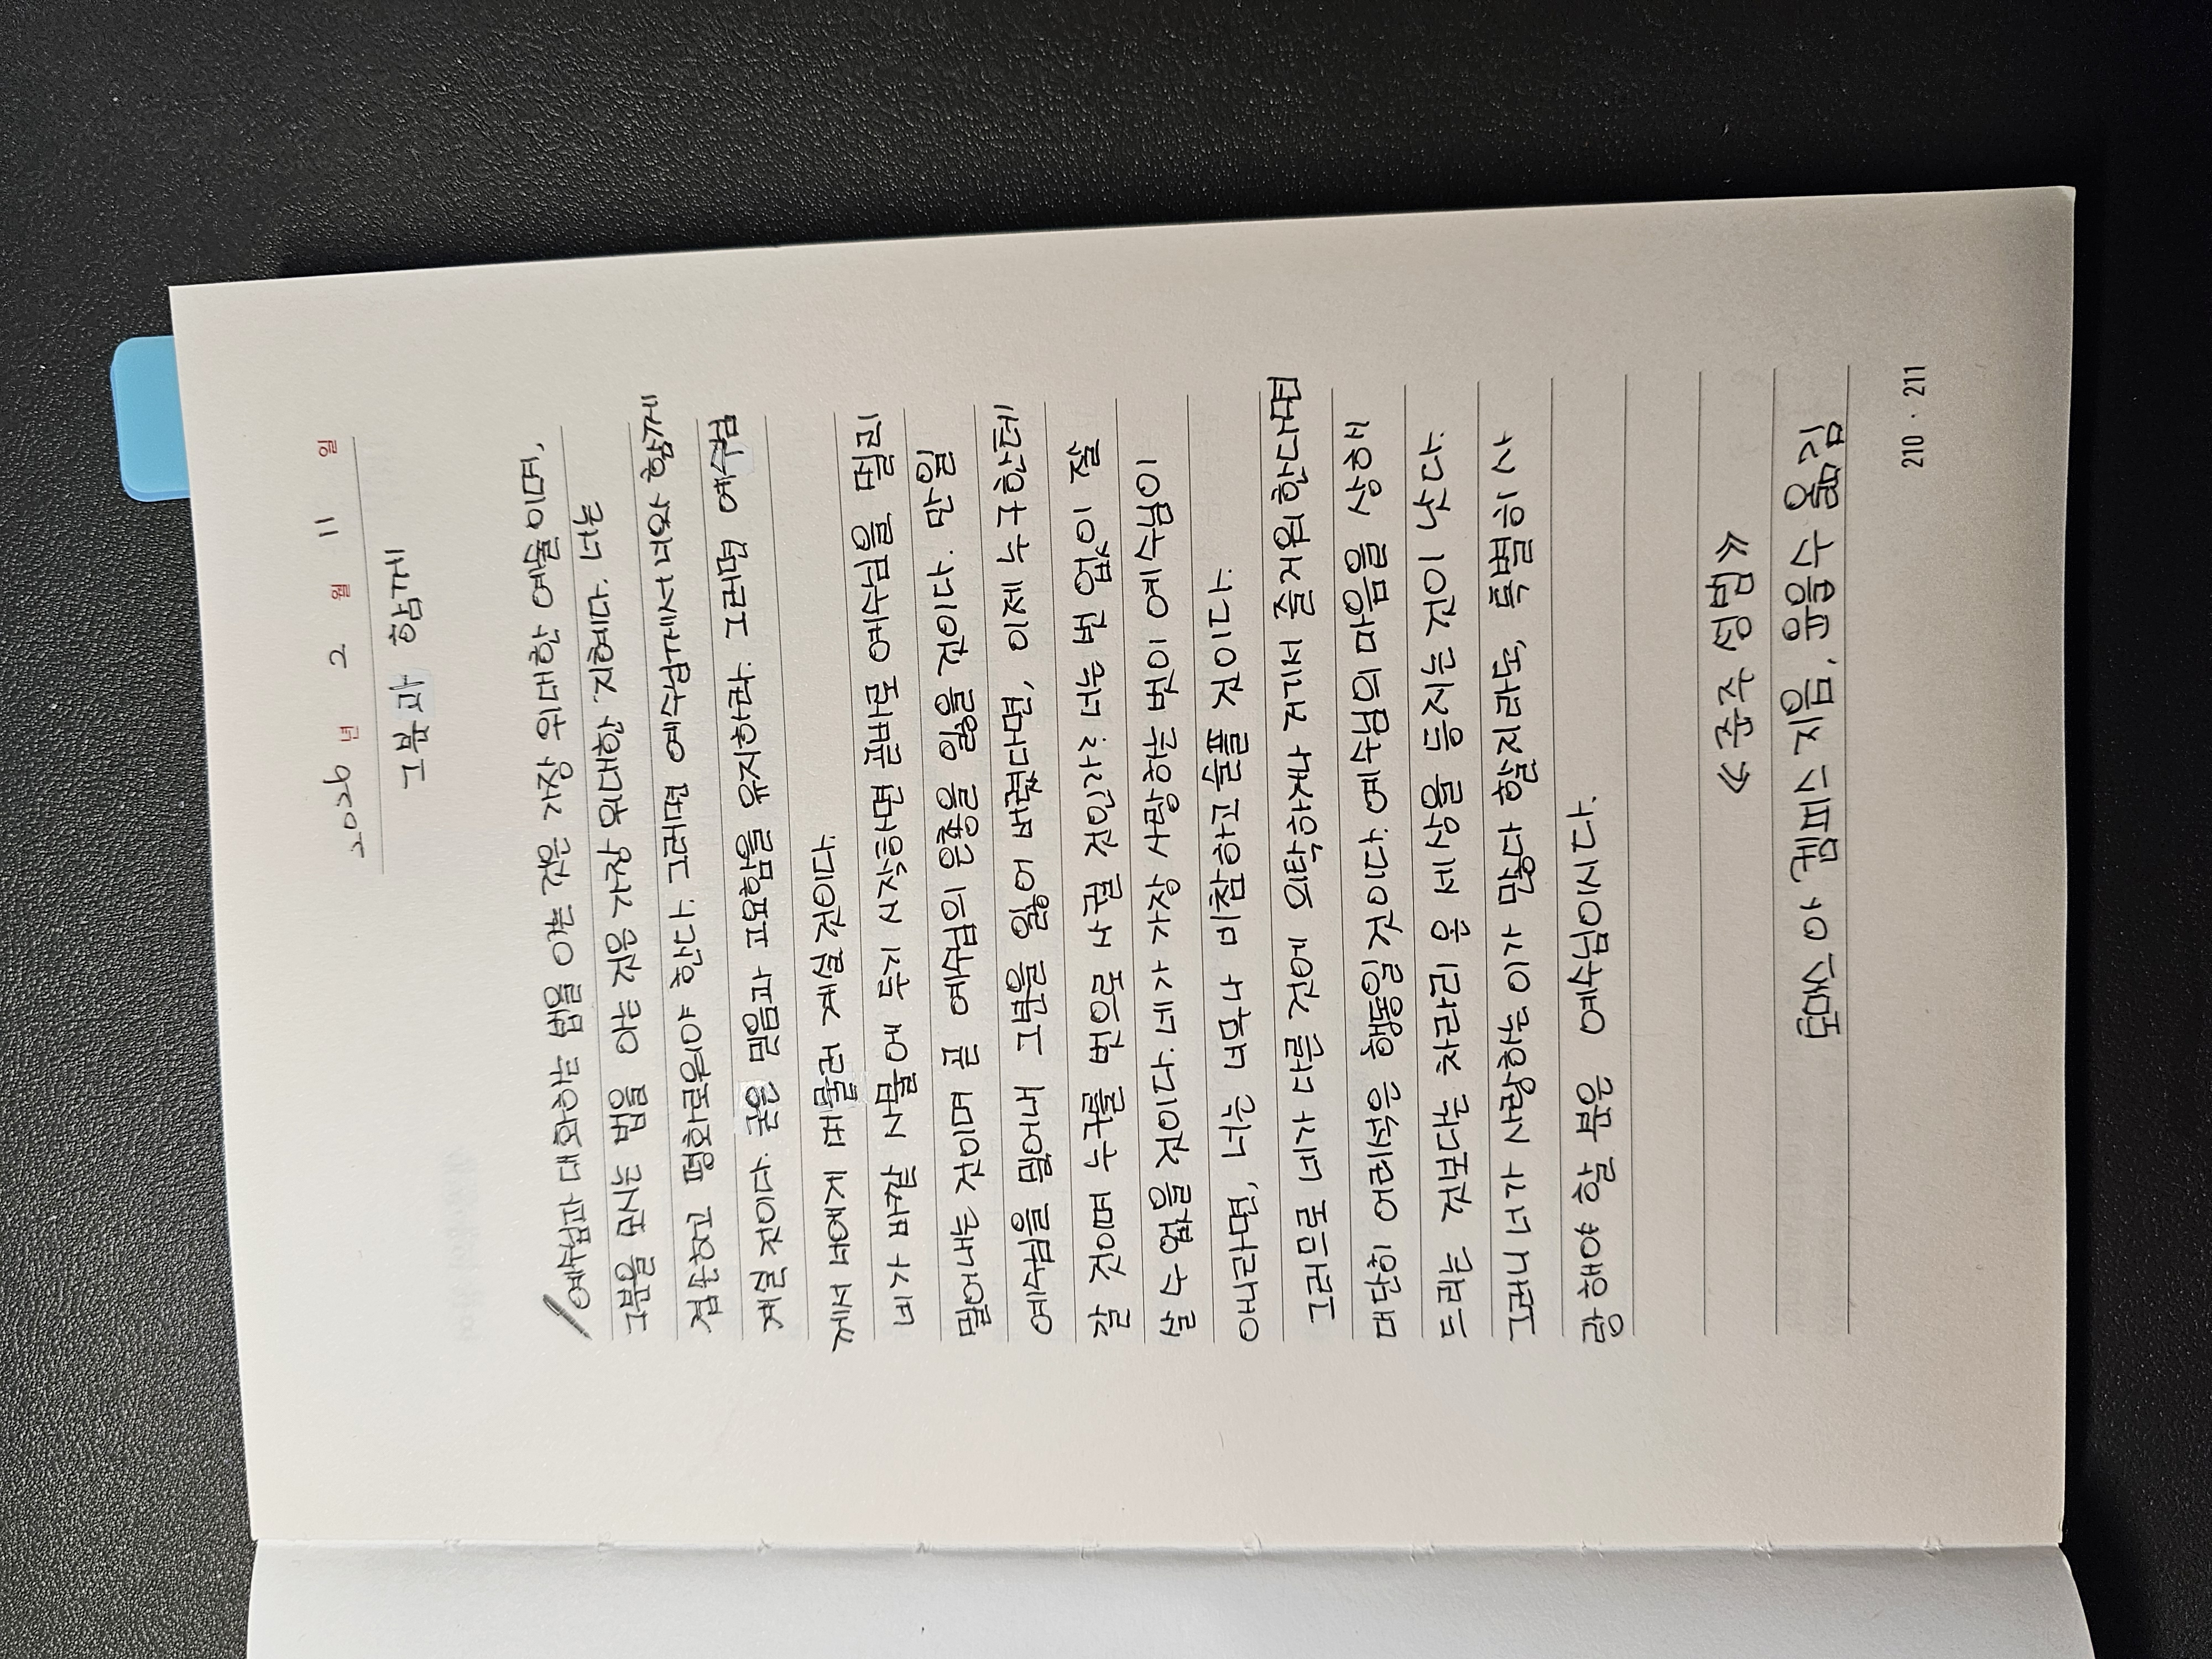 2026년 2월 11일
그분과 함께
예수님과 대화하는 법을 아는 것은 가장 위대한 예술이며,
그분을 모시는 법을 아는 것은 가장 위대한 지혜다. 너는
겸손하고 평화로워야 한다. 그러면 예수님께서 너와 함께
계실 것이다. 굳은 믿음과 평화를 유지하라. 그러면 예수님
께서 네게 머물러 계실 것이다.
네가 바깥 사물에 시선을 곧바로 예수님을 멀리
몰아내는 것이며 곧 예수님의 은총을 잃을 것이다. 만일
예수님을 몰아내 그분을 잃어 버린다면, 이제 누구한테
갈 것이며 누구를 벗으로 삼을 것인가? 너는 벗 없이 잘
살 수 없을 것이다. 네가 가장 사랑하는 벗이 예수님이
아니라면, 너는 너무나 비참하고 슬플 것이다.
그러므로 네가 다른 것에 의탁하거나 즐거워한다면
대단히 어리석은 행동일 것이다. 예수님의 마음을 상하게
드리는 것보다는 차라리 온 세상을 등지는 것이 낫다.
그러니 네가 사랑하는 이가 많다 할지라도, 특별히 사
랑해야 할 분은 예수님이시다.
《준주성범》
210 · 211